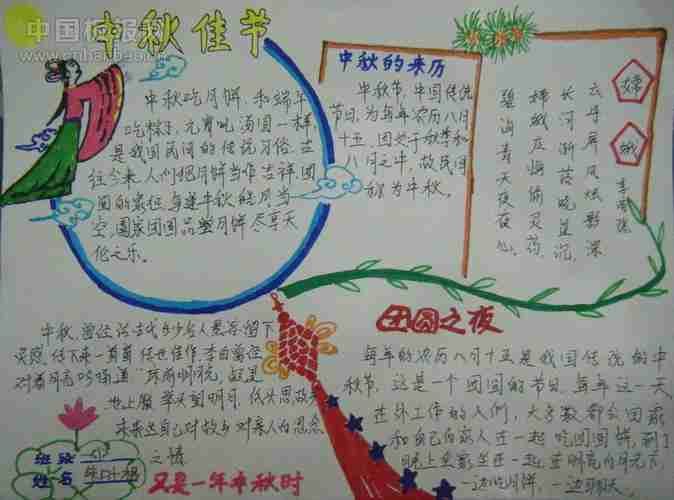 中国板报网
中秋佳节
中秋吃月饼,和端午
吃粽子,元宵吃汤圆一样,
是我国民间的传统习俗。古
往今来,人们把月饼当作吉祥、团
圆的象征,每逢中秋皓月当
空,阖家团圆,品饼赏月,尽享天
伦之乐。
中秋的来历
中秋节,中国传统
节日,为每年农历八月
十五,因处于秋季和
八月之中,故民间
称为中秋。
嫦娥
李商隐
云母屏风烛影深
长河渐落晓星沉
嫦娥应悔偷灵药
碧海青天夜夜心
中秋,曾经让古代多少名人墨客留下
下来一首首传世佳作,李白曾
对着月亮吟诵道
地上霜 举头望明月,低头思故乡
来表达自己对故乡对亲人的思念
之情
班级
姓名
又是一年中秋时
团圆之夜
每年的农历八月十五是我国传统的中
秋节,这是一个团圆的节日,每年这一天
在外工作的人们,大多数都会回家
和自己的家人在一起 吃团圆饼,到了
晚上全家坐在一起,在明亮的月光下
一边吃月饼,一边聊天。